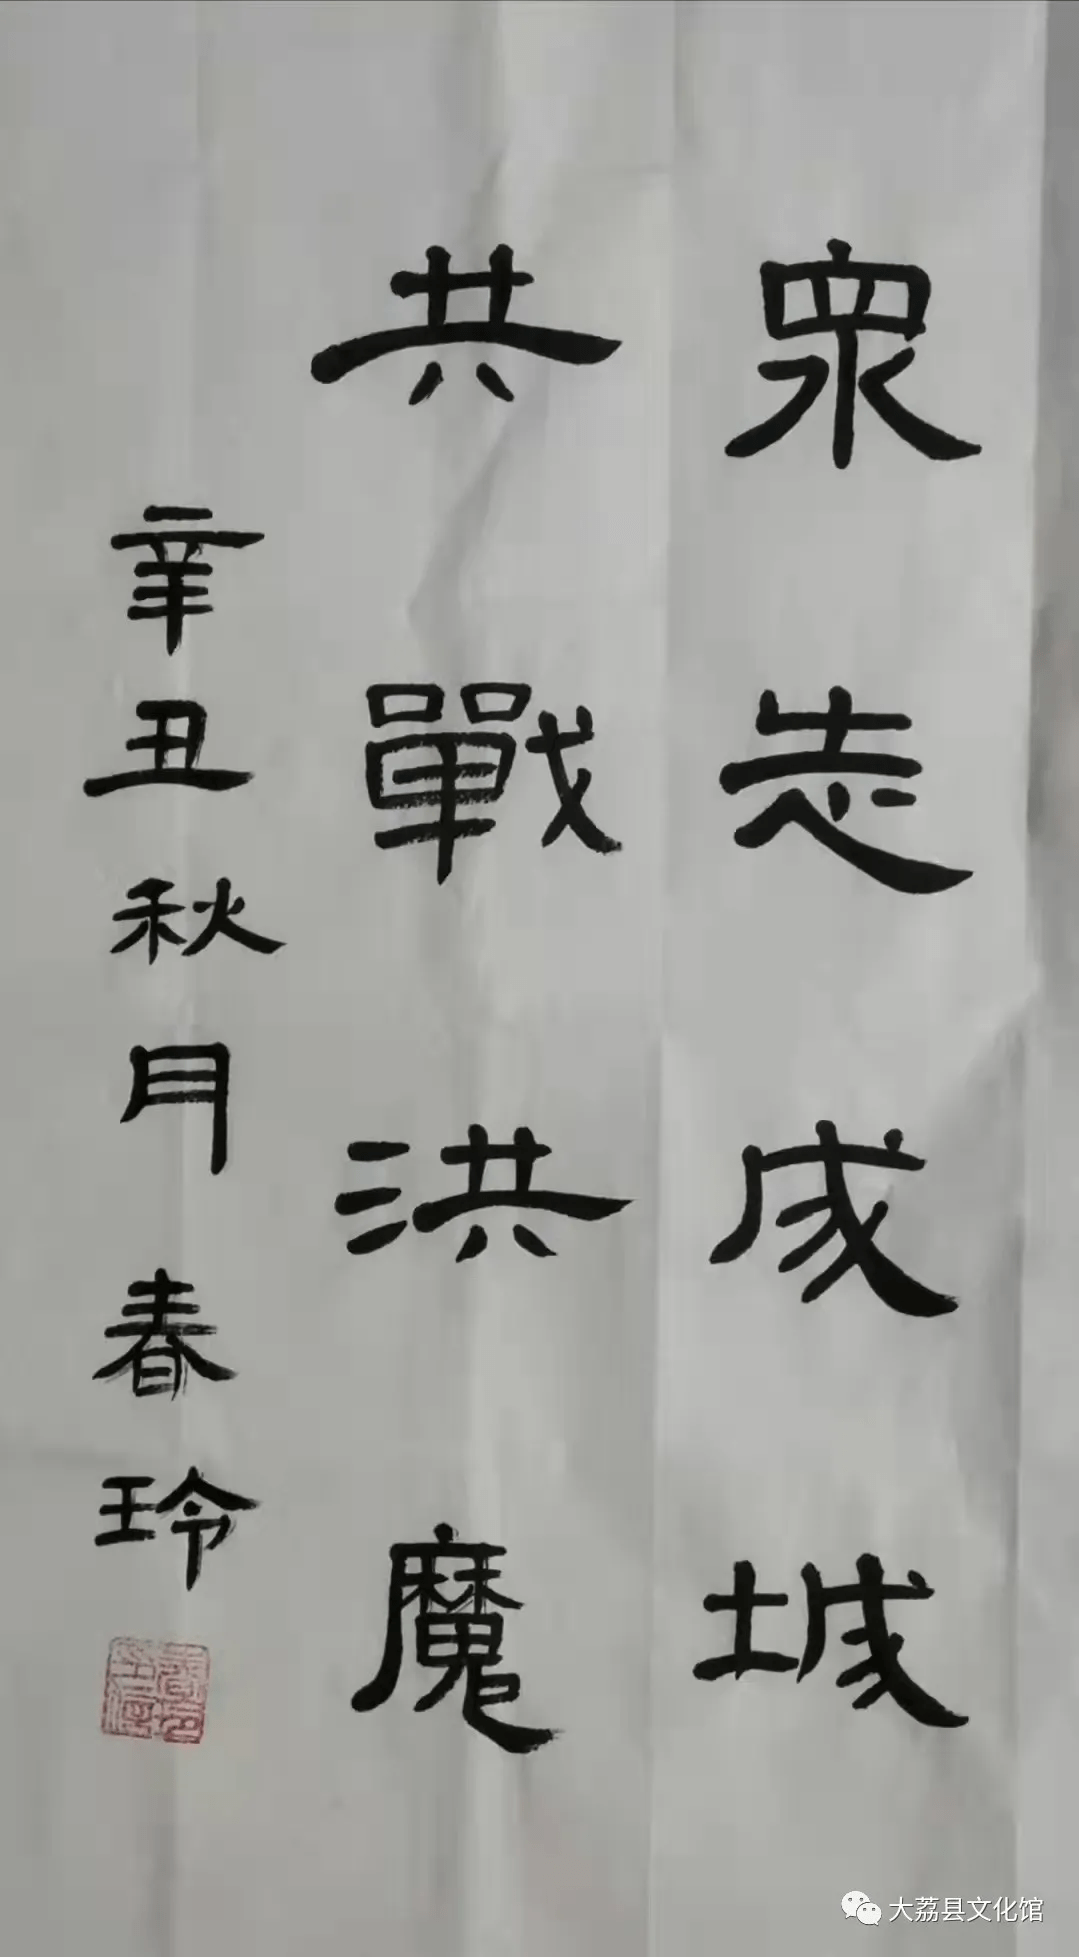 眾志成城
共戰洪魔
辛丑秋月春玲
大荔县文化馆